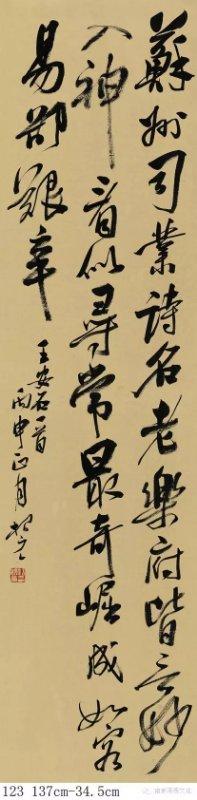 蘇州司業詩名老樂府皆言妙
入神看似尋常最奇崛成如容
易卻艱辛
王安石一首
丙申正月
123 137cm-34.5cm